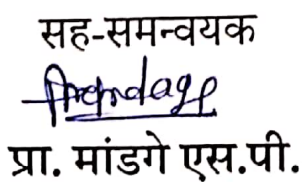 सह-समन्वयक
प्रा. मांडगे एस.पी.